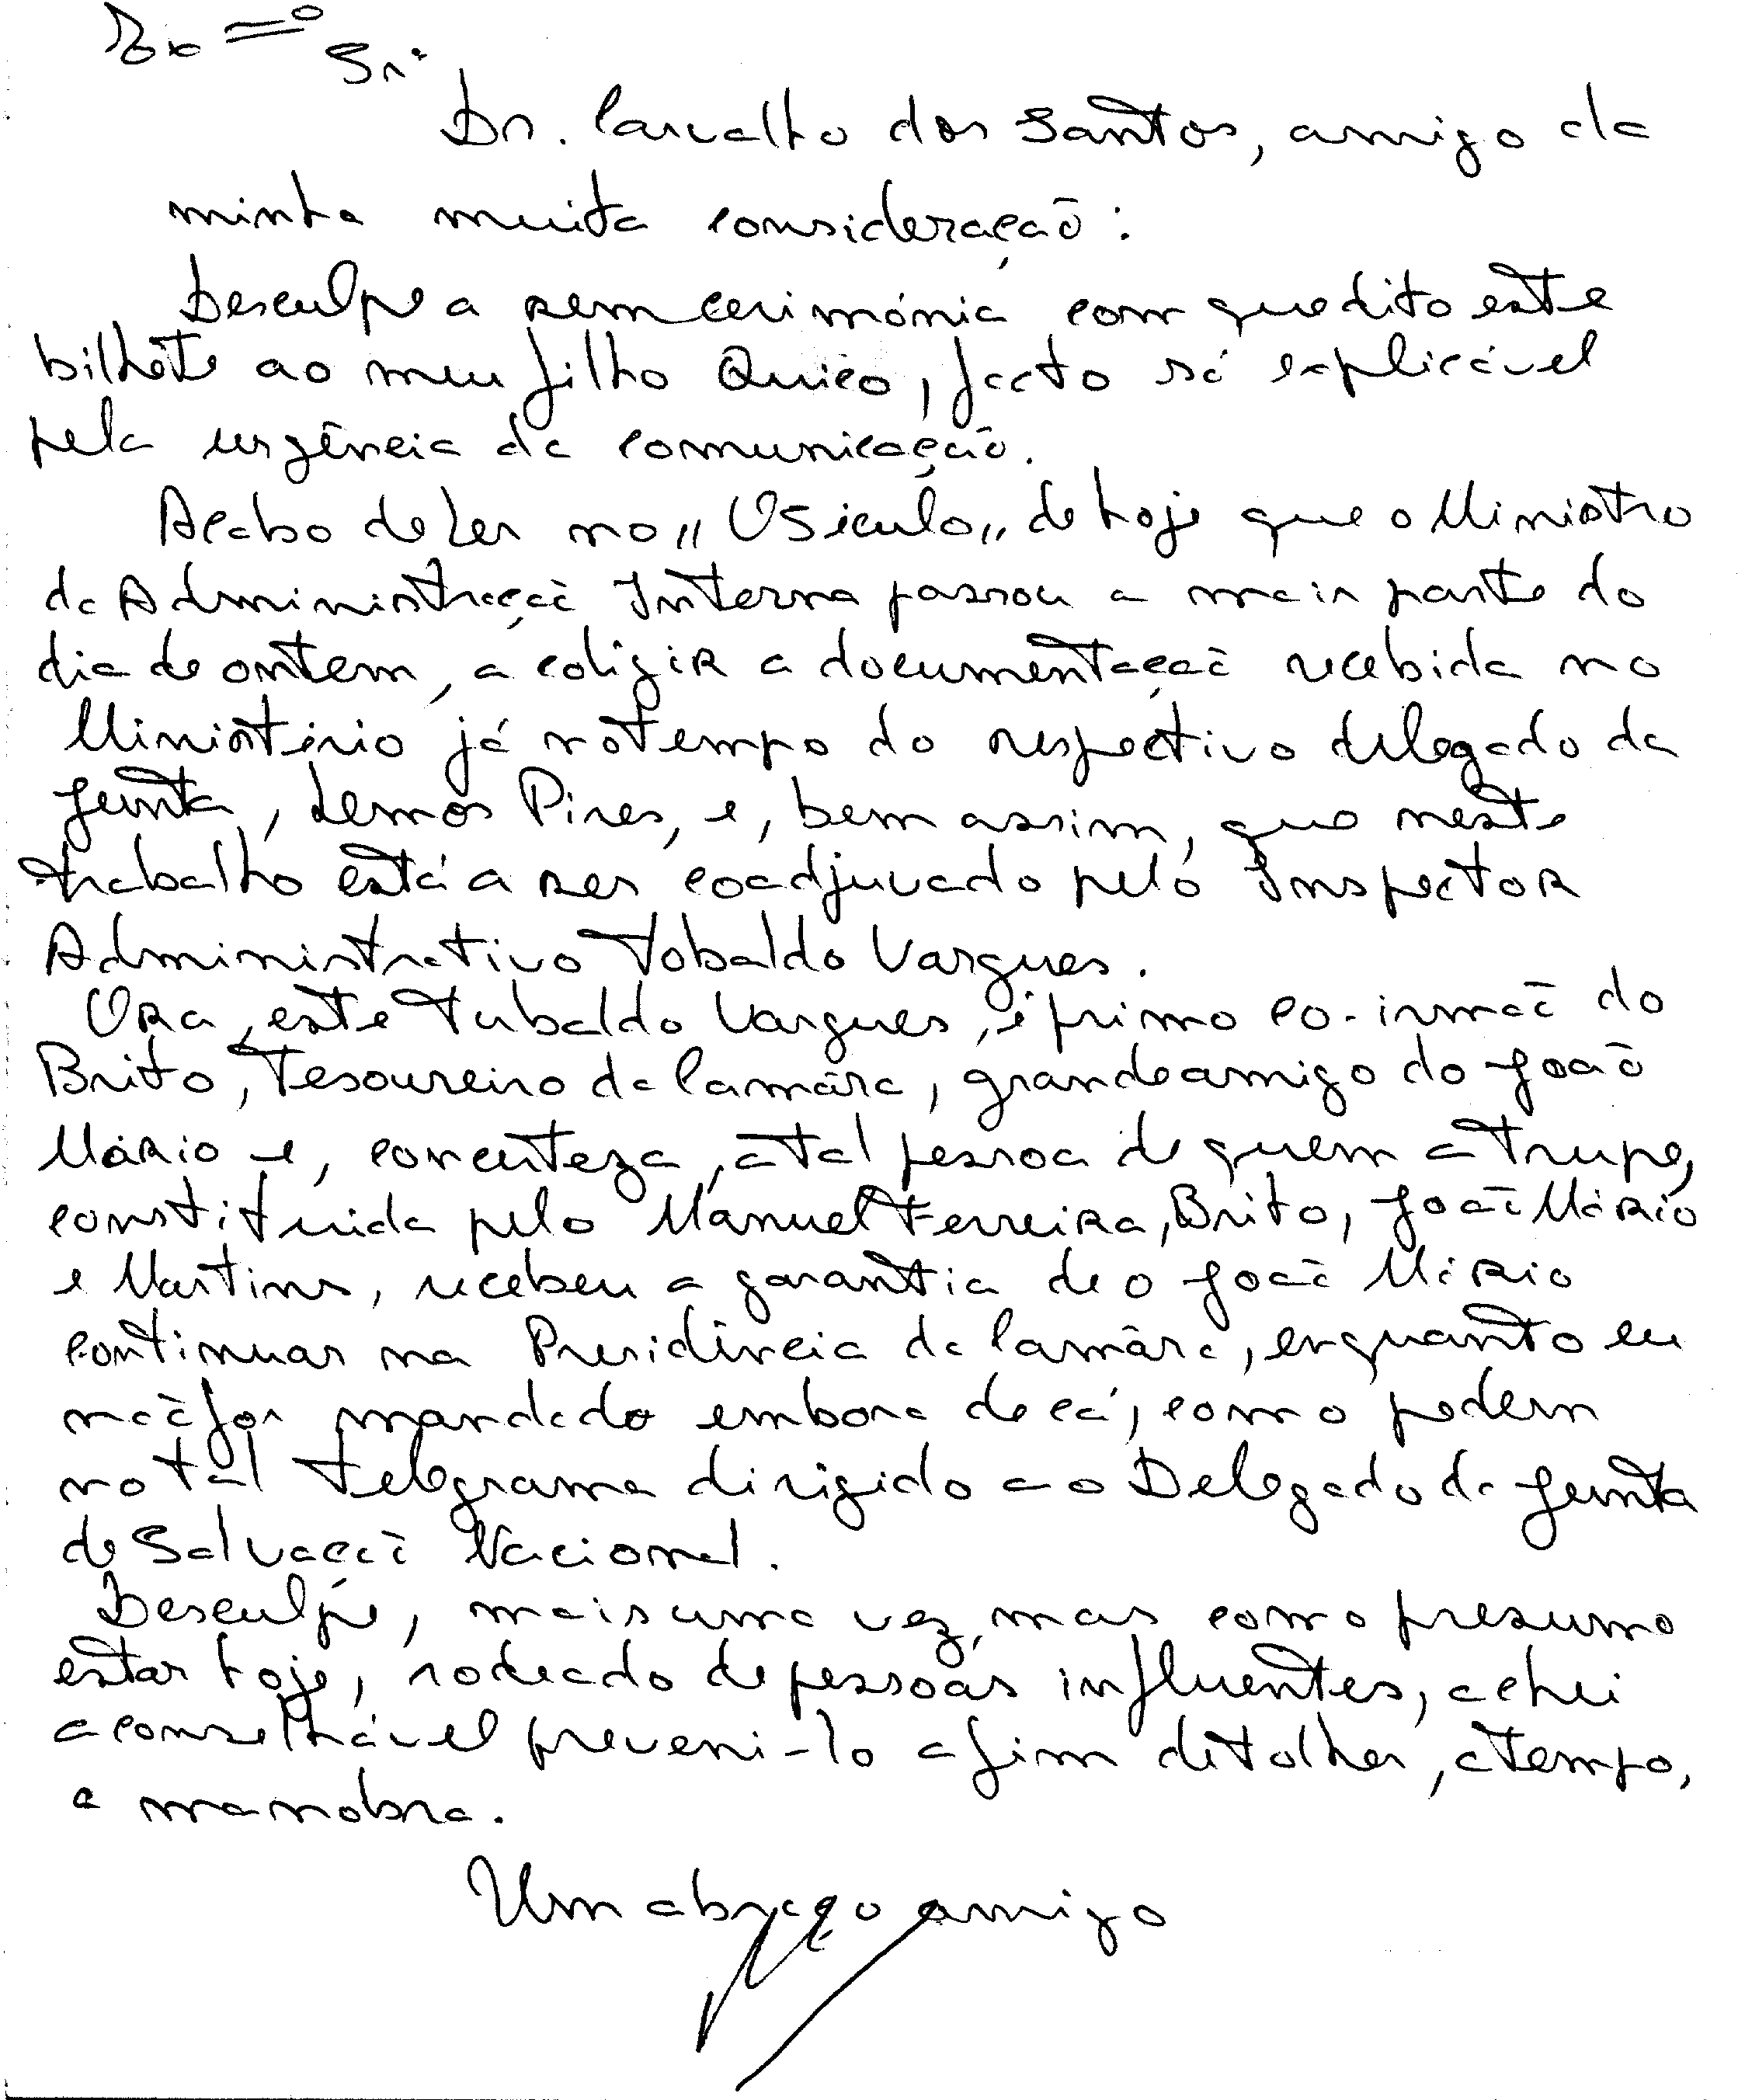 Ex=º
Snr.
Dr. Carvalho dos Santos, amigo da
minha muita consideração:
Desculpe a sem cerimónia com que dito este
bilhete ao meu filho Quico, facto só explicável
pela urgência da comunicação.
Acabo de ler no „O Século„ de hoje que o Ministro
da Administração Interna passou a maior parte do
dia de ontem, a coligir a documentação recebida no
Ministério já no tempo do respectivo delegado da
Junta, Lemos Pires, e, bem assim, que neste
trabalho está a ser coadjuvado pelo Inspector
Administrativo Tobaldo Vargues.
Ora, este Tubaldo Vargues, é primo co-irmão do
Brito, Tesoureiro da Camâra, grande amigo do João
Mário e, com certeza, a tal pessoa de quem a Trupe,
constituida pelo Manuel Ferreira, Brito, João Mário
e Martins, recebeu a garantia de o João Mário
continuar na Presidência da Camâra, enquanto eu
não for mandado embora de cá, como pedem
no tal telegrama dirigido ao Delegado da Junta
de Salvação Nacional.
Desculpe, mais uma vez, mas como presumo
estar hoje, rodeado de pessoas influentes, achei
aconselhável preveni-lo a fim de tolher, a tempo,
a manobra.
Um abraço amigo